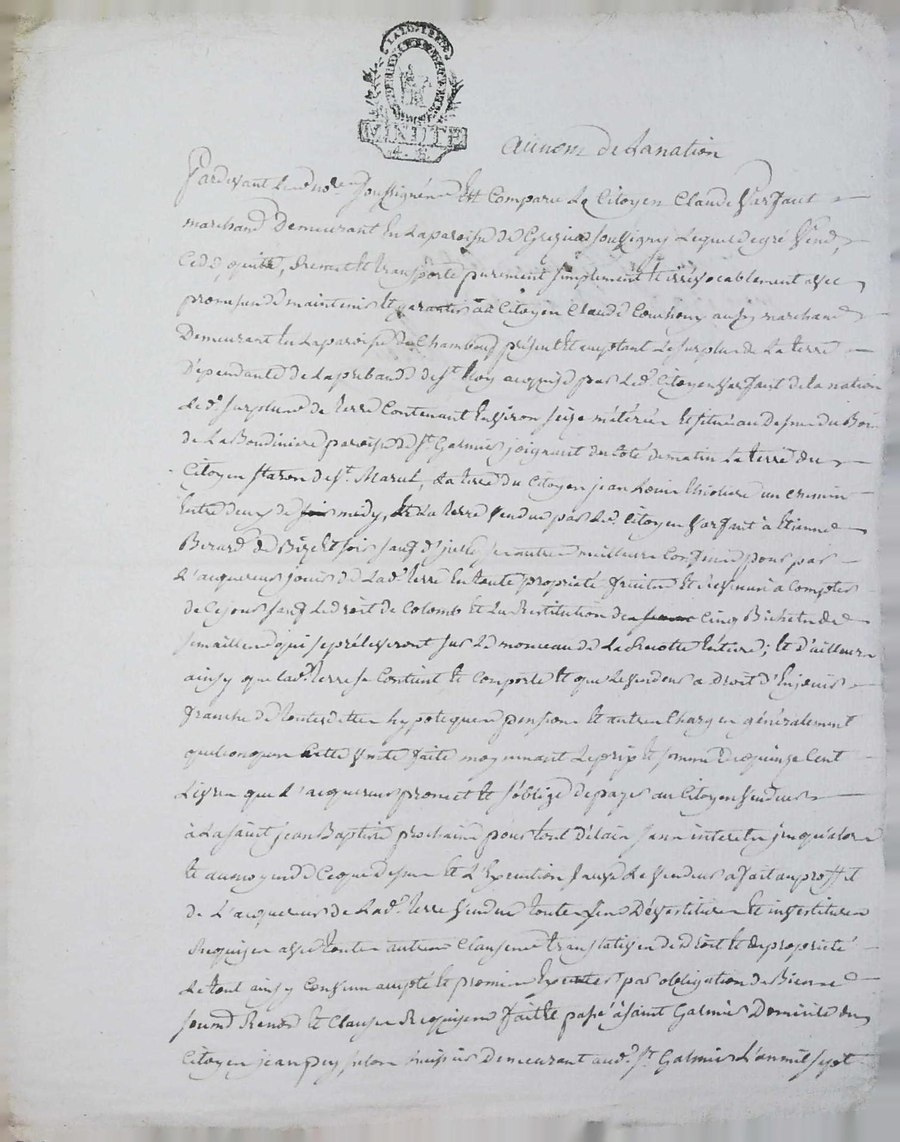 LA LOI LE ROI
MIN. DTE
4. S.
au nom de La nation
Pardevant Le no.re Soussigné Est Comparu Le Citoyen Claude
marchand Demeurant En La paroisse de Lequel de gré Vend,
Cede, quitte, Remet et transporte purement simplement et irrévocablement avec
promesse de maintenir Et garantir au Citoyen Claude aussy marchand
Demeurant En La paroisse de Chambœuf présent Et acceptant Le surplus de La terre
Dépendante de La prebande de St. acquise par Led. Citoyen de la nation
Led. surplus de terre Contenant Environ seize Et situé au dessus du Bois
de La Boudiniere paroisse de St. Galmier joignant du coté de matin La terre du
Citoyen de St. La terre du Citoyen jean Louis un chemin
Entre deux de midy, Et La terre vendue par Led. Citoyen à Etienne
Berard de Bize Et soir sauf d'iceux autres meilleurs Confins pour par
L'acquereur jouir de Lad. terre En toute propriété fruits Et revenus à Compter
de Ce jour sauf Le droit de Et La Restitution de Cinq Bichets de
semaille qui se préleveront sur Le monceau de La Recolte Entiere; Et d'ailleurs
ainsy que lad. terre se Contient Et Comporte Et que Le Vendeur a Droit d'En jouir
franche de toutes dettes hypoteques pensions Et autres Charges généralement
quelconques Cette Vente faite moyennant Le prix Et somme De quinze Cent
Livres que L'acquereur promet Et s'oblige de payer au Citoyen Vendeur
à La saint jean Baptiste prochaine pour tout Délain sans interets jusqu'alors
Et au moyen de Ce que dessus Et L'Execution sauve Le Vendeur a fait au proffit
de L'acquereur de Lad. terre Vendue toutes Dévestitures Et investitures
Requises avec toutes autres Clauses translatives de droit Et de propriété
Le tout ainsy Convenu accepté Et promis Executer par obligation de Biens
soumd. Renond. Et Clauses Requises fait Et passé à saint Galmier Domicile du
Citoyen jean huissier Demeurant aud. St. Galmier L'an mil sept